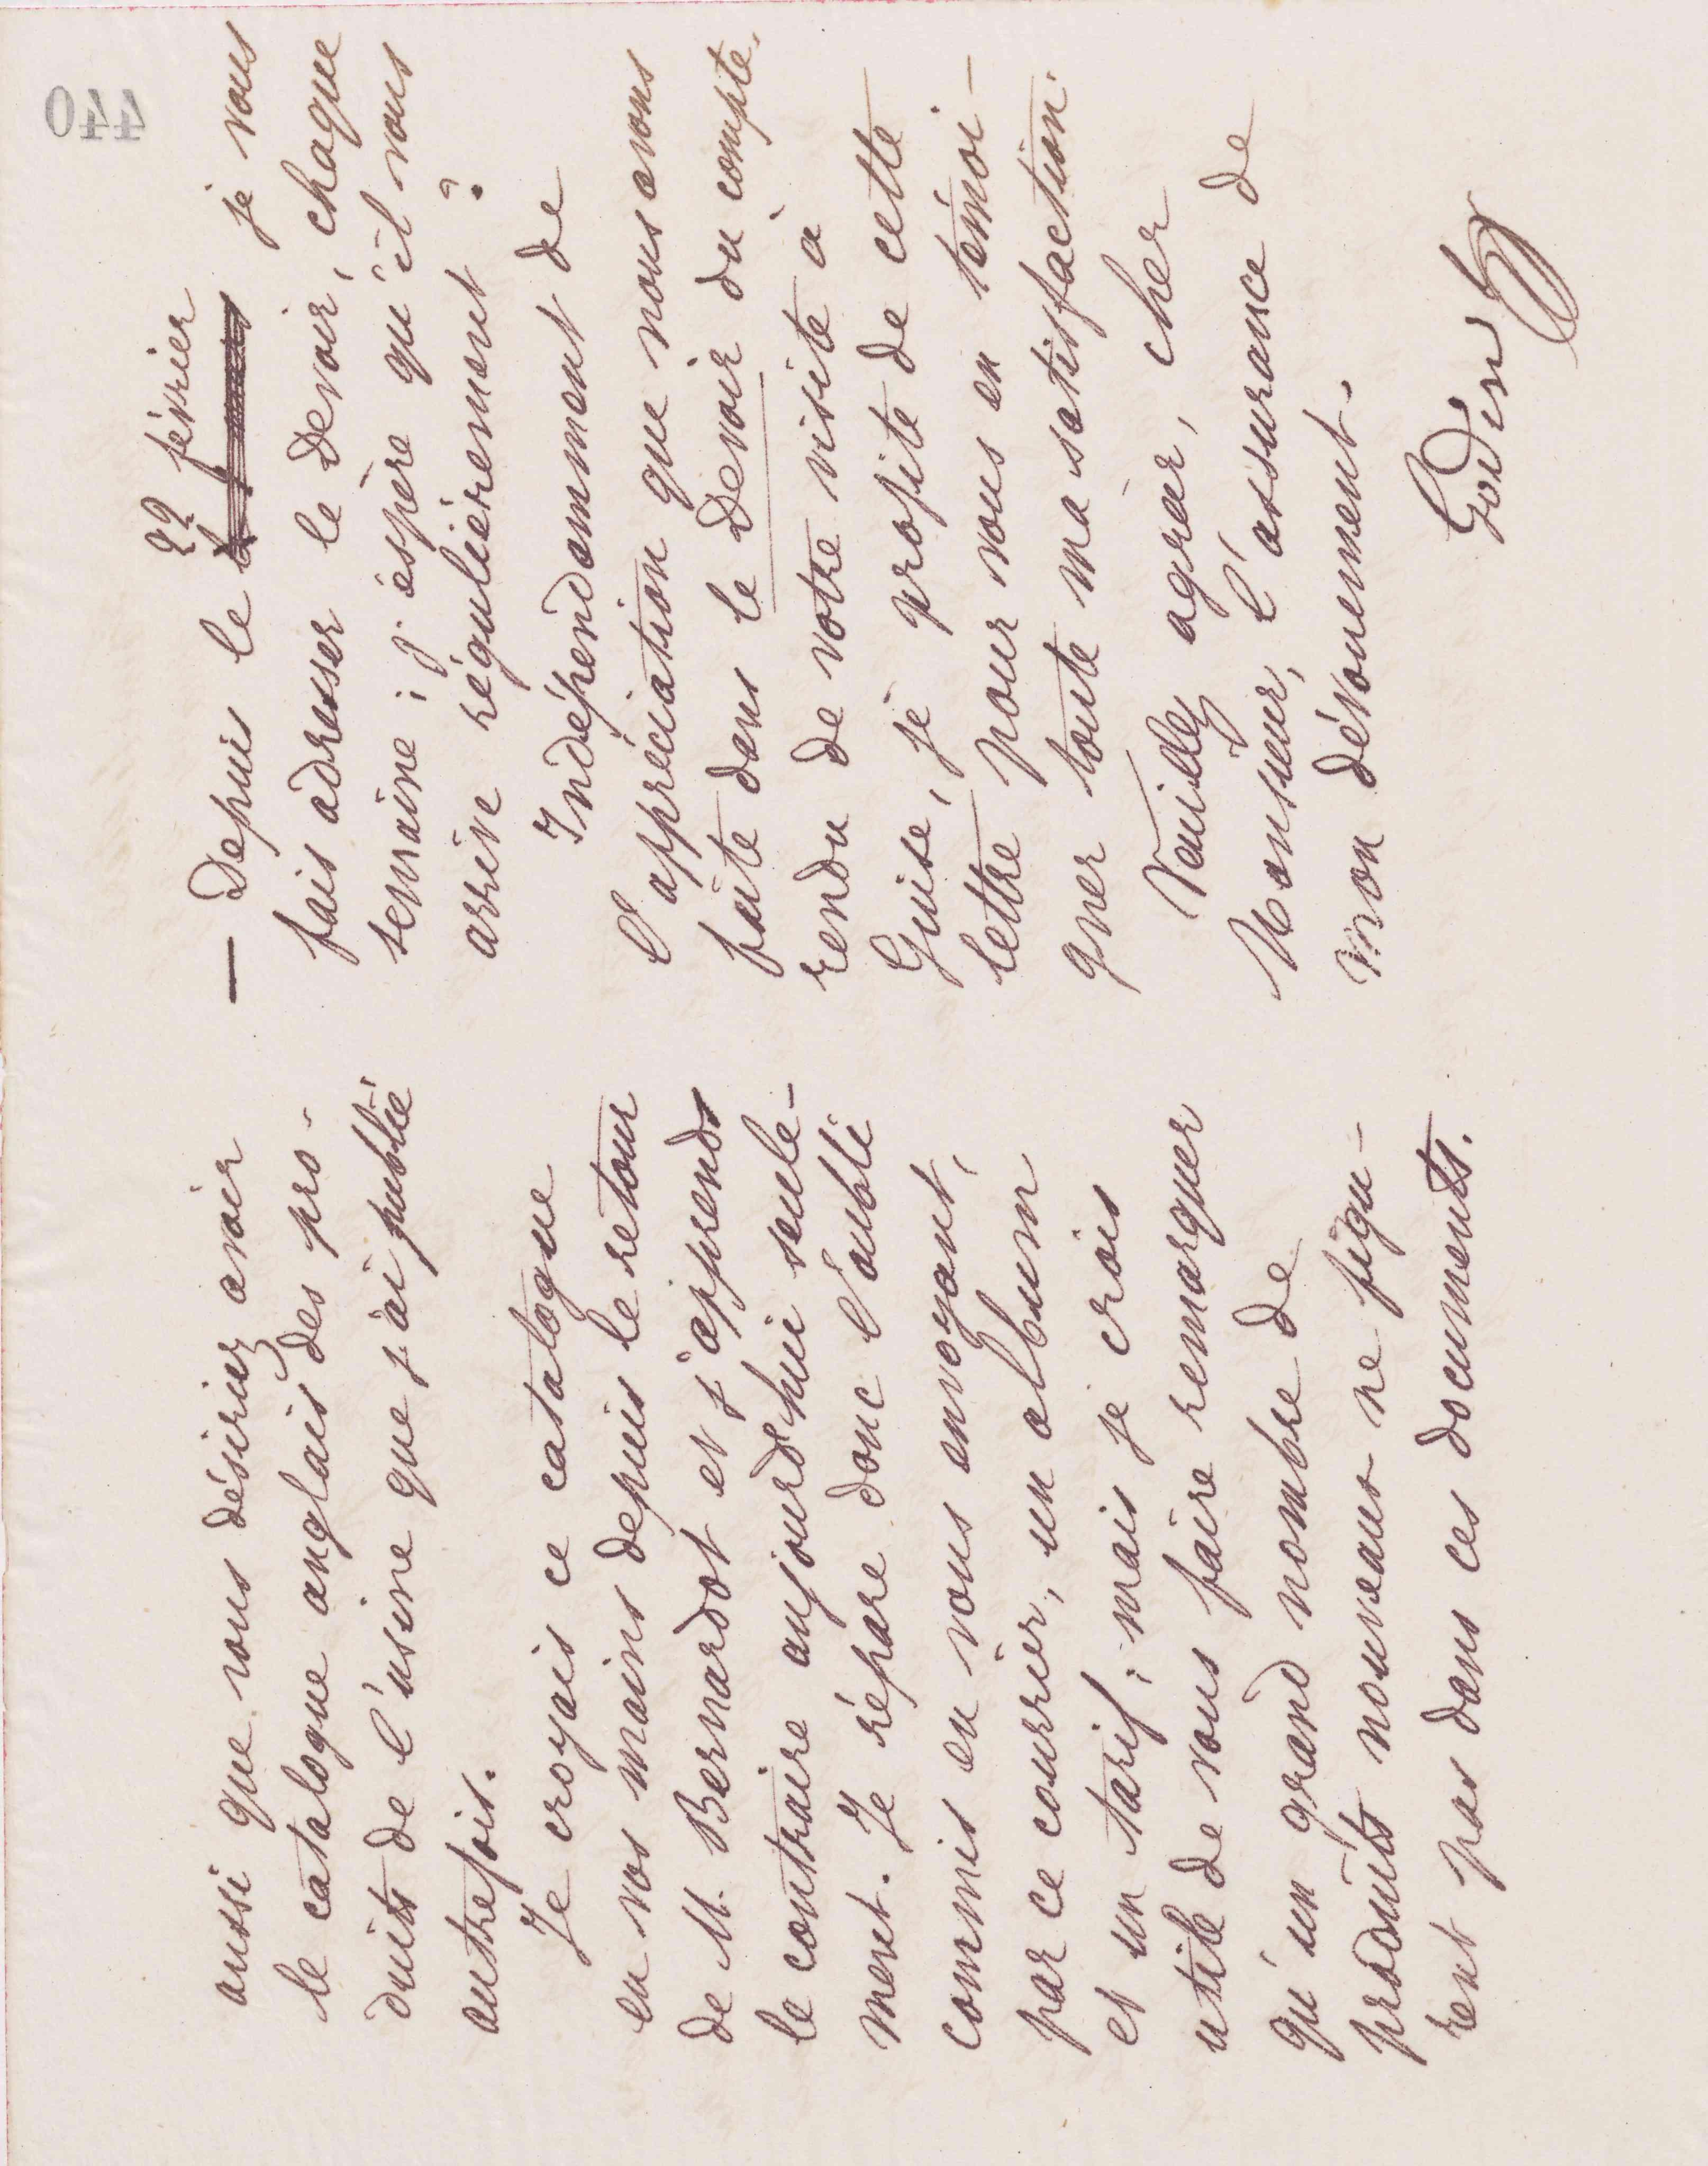 440
aussi que vous désiriez avoir
le catalogue anglais des pro-
duits de l'usine que j'ai publié
autrefois.
Je croyais ce catalogue
en vos mains depuis le retour
de M. Bernardot et j'apprends
le contraire aujourd'hui seule-
ment. Je répare donc l'oubli
commis en vous envoyant,
par ce courrier, un album
et un tarif; mais je crois
utile de vous faire remarquer
qu'un grand nombre de
produits nouveaux ne figu-
rent pas dans ces documents.
22 février
— Depuis le je vous
fais adresser le Devoir, chaque
semaine; j'espère qu'il vous
arrive régulièrement?
Indépendamment de
l'appréciation que nous avons
faite dans le Devoir du compte,
rendu de votre visite à
Guise, je profite de cette
lettre pour vous en témoi-
gner toute ma satisfaction.
Veuillez agréer, cher
Monsieur, l'assurance de
mon dévouement.
Godin